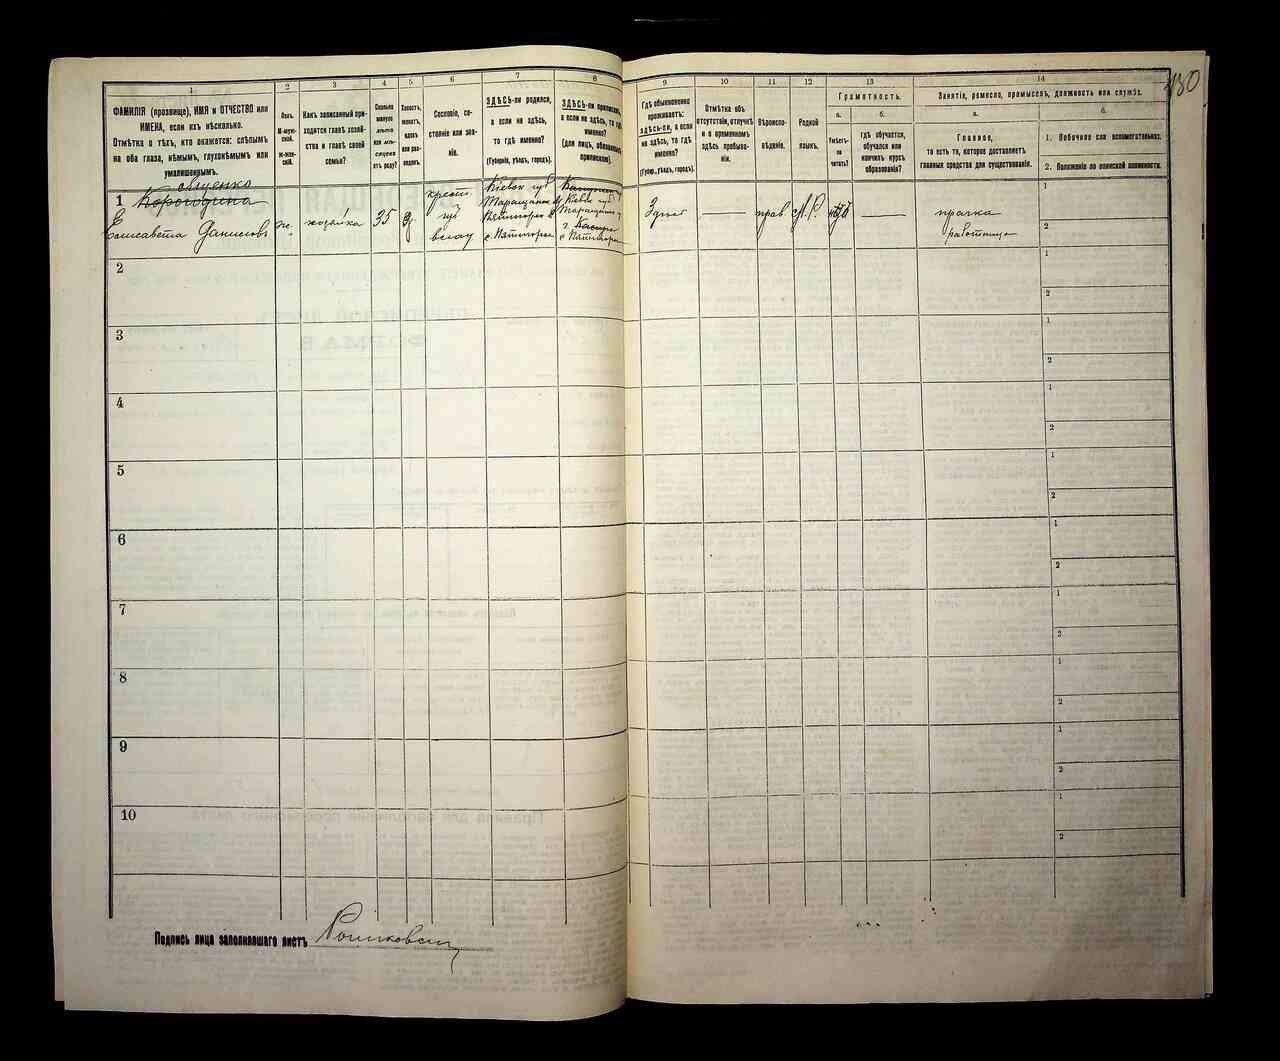 130
1
2
3
4
5
6
7
8
9
10
11
12
13
14
ФАМИЛІЯ (прозвище), ИМЯ и ОТЧЕСТВО или
ИМЕНА, если ихъ нѣсколько.
Отмѣтка о тѣхъ, кто окажется: слѣпымъ
на оба глаза, нѣмымъ, глухонѣмымъ или
умалишеннымъ.
Полъ.
М-муж-
ской.
Ж-жен-
скій.
Какъ записанный при-
ходится главѣ хозяй-
ства и главѣ своей
семьи?
Сколько
минуло
лѣтъ
или мѣ-
сяцевъ
отъ роду?
Холостъ,
женатъ,
вдовъ
или раз-
веденъ.
Сословіе, со-
стояніе или зва-
ніе.
ЗДѢСЬ-ли родился,
а если не здѣсь,
то гдѣ именно?
(Губернія, уѣздъ, городъ).
ЗДѢСЬ-ли приписанъ,
а если не здѣсь, то гдѣ
именно?
(Для лицъ, обязанныхъ
припискою).
Гдѣ обыкновенно
проживаетъ:
ЗДѢСЬ-ли, а если
не здѣсь, то гдѣ
именно?
(Губерн., уѣздъ, городъ).
Отмѣтка объ
отсутствіи, отлучкѣ
и о временномъ
здѣсь пребыва-
ніи.
Вѣроиспо-
вѣданіе.
Родной
языкъ.
Грамотность.
а.
Умѣетъ-
ли
читать?
б.
Гдѣ обучается,
обучался или
кончилъ курсъ
образованія?
Занятіе, ремесло, промыселъ, должность или служба.
а.
Главное,
то есть то, которое доставляетъ
главныя средства для существованія.
б.
1. Побочное или вспомогательное.
2. Положеніе по воинской повинности.
1
Елисавета Данилова
ж.
хозяйка
35
крест.
Кіевск. губ
с. Пятигоры
Здѣсь
прав
М. Р.
нѣтъ
прачка
работница
1
2
2
1
2
3
1
2
4
1
2
5
1
2
6
1
2
7
1
2
8
1
2
9
1
2
10
1
2
Подпись лица заполнявшаго листъ